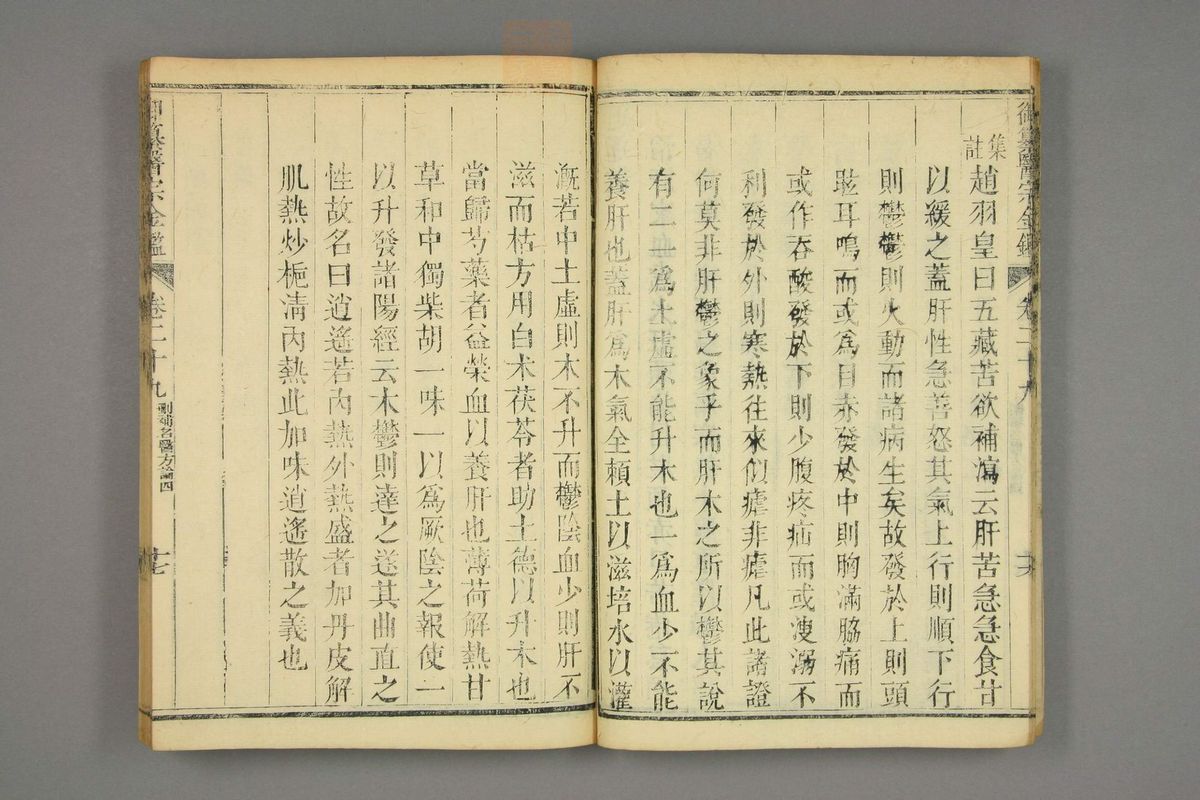 御纂醫宗金鑑 卷二十九 十六
集註
趙羽皇曰五藏苦欲補瀉云肝苦急急食甘
以緩之蓋肝性急善怒其氣上行則順下行
則鬱鬱則火動而諸病生矣故發於上則頭
眩耳鳴而或為目赤發於中則胸滿脇痛而
或作吞酸發於下則少腹疼疝而或溲溺不
利發於外則寒熱往來似瘧非瘧凡此諸證
何莫非肝鬱之象乎而肝木之所以鬱其說
有二一為土虛不能升木也一為血少不能
養肝也蓋肝為木氣全賴土以滋培水以灌
溉若中土虛則木不升而鬱陰血少則肝不
滋而枯方用白朮茯苓者助土德以升木也
當歸芍藥者益榮血以養肝也薄荷解熱甘
草和中獨柴胡一味一以為厥陰之報使一
以升發諸陽經云木鬱則達之遂其曲直之
性故名曰逍遙若內熱外熱盛者加丹皮解
肌熱炒梔清內熱此加味逍遙散之義也
御纂醫宗金鑑 卷二十九 刪補名醫方論四 十七